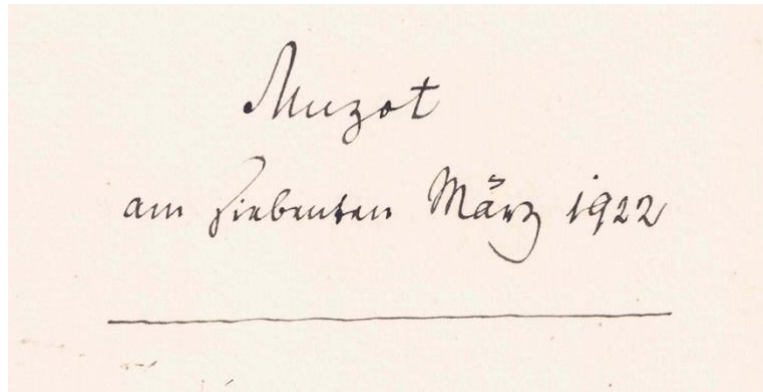 Muzot
am siebenten März 1922